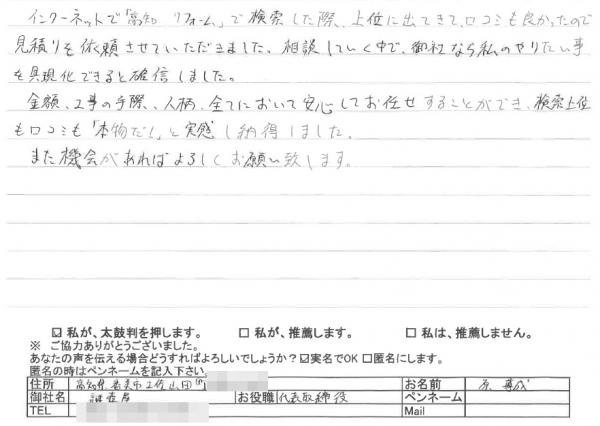 インターネットで「高知 リフォーム」で検索した際、上位に出てきて、口コミも良かったので
見積りを依頼させていただきました。相談していく中で、御社なら私のやりたい事
を具現化できると確信しました。
金額、工事の手際、人柄、全てにおいて安心してお任せすることができ、検索上位
も口コミも「本物だ!」と実感し納得しました。
また機会があればよろしくお願い致します。
☑ 私が、太鼓判を押します。 □ 私が、推薦します。 □ 私は、推薦しません。
※ ご協力ありがとうございました。
あなたの声を伝える場合どうすればよろしいでしょうか?☑実名でOK □匿名にします。
匿名の時はペンネームを記入下さい。
住所 高知県香美市土佐山田町 お名前 原
御社名 お役職 代表取締役 ペンネーム
TEL Mail